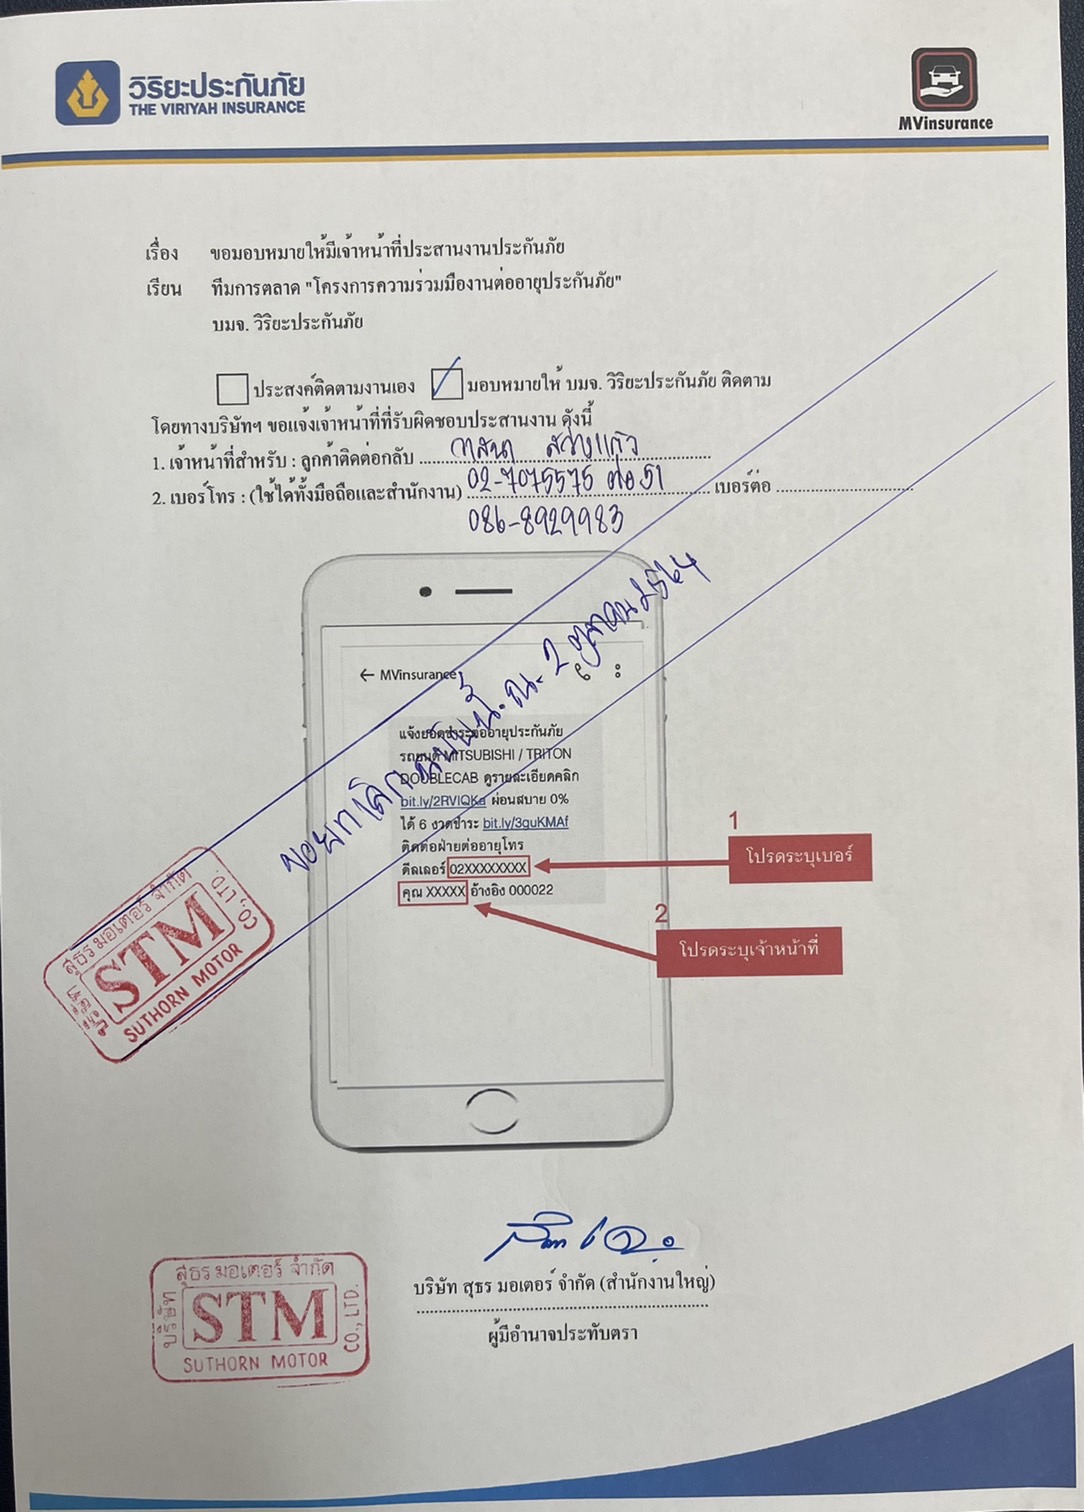 วิริยะประกันภัย
THE VIRIYAH INSURANCE
MVinsurance
เรื่อง ขอมอบหมายให้มีเจ้าหน้าที่ประสานงานประกันภัย
เรียน ทีมการตลาด "โครงการความร่วมมืองานต่ออายุประกันภัย"
บมจ. วิริยะประกันภัย
ประสงค์ติดตามงานเอง มอบหมายให้ บมจ. วิริยะประกันภัย ติดตาม
โดยทางบริษัทฯ ขอแจ้งเจ้าหน้าที่ที่รับผิดชอบประสานงาน ดังนี้
1. เจ้าหน้าที่สำหรับ : ลูกค้าติดต่อกลับ สว่างแก้ว
2. เบอร์โทร : (ใช้ได้ทั้งมือถือและสำนักงาน) 02-7075575 ต่อ 51 เบอร์ต่อ
086-8929983
← MVinsurance
แจ้งยอดชำระต่ออายุประกันภัย
รถยนต์ MITSUBISHI / TRITON
DOUBLECAB ดูรายละเอียดคลิก
bit.ly/2RVIQKa ผ่อนสบาย 0%
ได้ 6 งวดชำระ bit.ly/3guKMAf
ติดต่อฝ่ายต่ออายุโทร
ดีลเลอร์ 02XXXXXXXX
คุณ XXXXX อ้างอิง 000022
1
โปรดระบุเบอร์
2
โปรดระบุเจ้าหน้าที่
ขอยกเลิกฉบับนี้ ณ. 2 ตุลาคม 2564
บริษัท สุธร มอเตอร์ จำกัด
STM
SUTHORN MOTOR
CO., LTD.
บริษัท สุธร มอเตอร์ จำกัด (สำนักงานใหญ่)
ผู้มีอำนาจประทับตรา
บริษัท สุธร มอเตอร์ จำกัด
STM
SUTHORN MOTOR
CO., LTD.